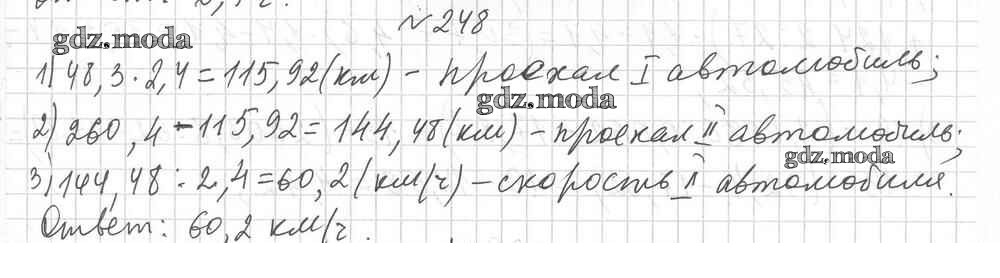 №248
gdz.moda
1) 48,3 · 2,4 = 115,92 (км) – проехал I автомобиль;
gdz.moda
2) 260,4 – 115,92 = 144,48 (км) – проехал II автомобиль;
gdz.moda
3) 144,48 : 2,4 = 60,2 (км/ч) – скорость II автомобиля.
Ответ: 60,2 км/ч.